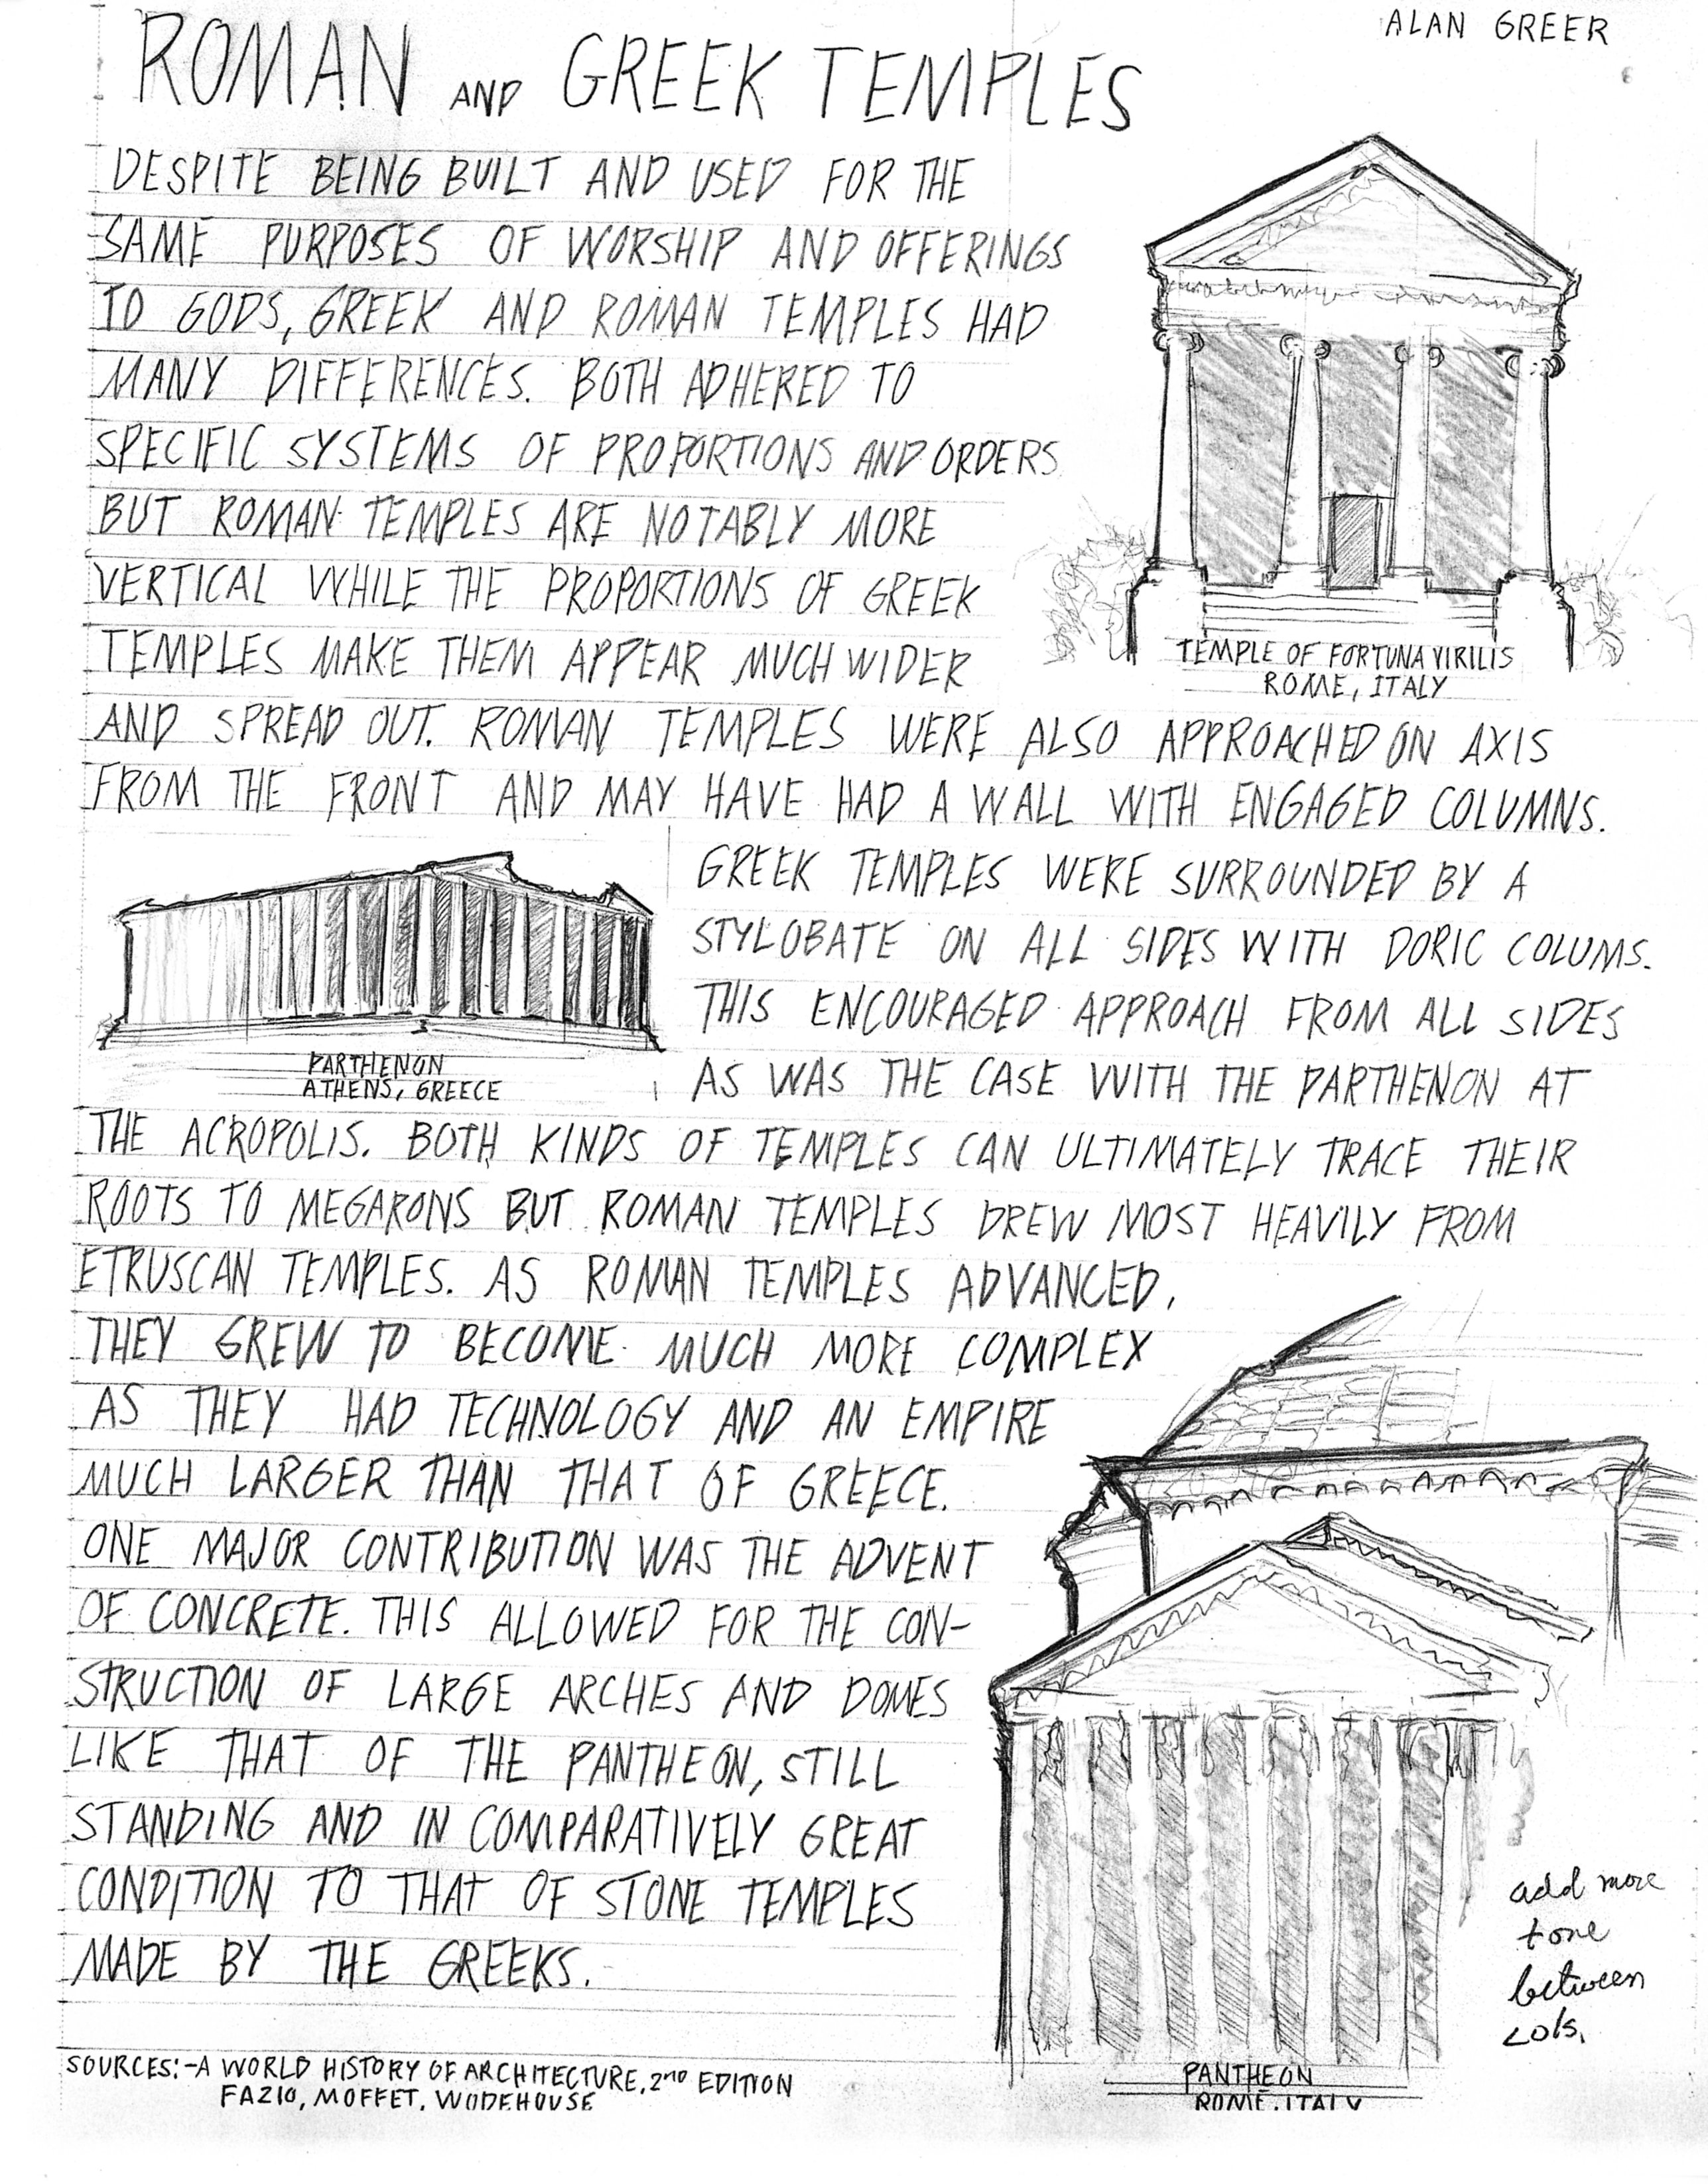 ALAN GREER
ROMAN AND GREEK TEMPLES
DESPITE BEING BUILT AND USED FOR THE
SAME PURPOSES OF WORSHIP AND OFFERINGS
TO GODS, GREEK AND ROMAN TEMPLES HAD
MANY DIFFERENCES. BOTH ADHERED TO
SPECIFIC SYSTEMS OF PROPORTIONS AND ORDERS
BUT ROMAN TEMPLES ARE NOTABLY MORE
VERTICAL WHILE THE PROPORTIONS OF GREEK
TEMPLES MAKE THEM APPEAR MUCH WIDER
AND SPREAD OUT. ROMAN TEMPLES WERE ALSO APPROACHED ON AXIS
FROM THE FRONT AND MAY HAVE HAD A WALL WITH ENGAGED COLUMNS.
TEMPLE OF FORTUNA VIRILIS
ROME, ITALY
GREEK TEMPLES WERE SURROUNDED BY A
STYLOBATE ON ALL SIDES WITH DORIC COLUMS.
THIS ENCOURAGED APPROACH FROM ALL SIDES
AS WAS THE CASE WITH THE PARTHENON AT
PARTHENON
ATHENS, GREECE
THE ACROPOLIS. BOTH KINDS OF TEMPLES CAN ULTIMATELY TRACE THEIR
ROOTS TO MEGARONS BUT ROMAN TEMPLES DREW MOST HEAVILY FROM
ETRUSCAN TEMPLES. AS ROMAN TEMPLES ADVANCED,
THEY GREW TO BECOME MUCH MORE COMPLEX
AS THEY HAD TECHNOLOGY AND AN EMPIRE
MUCH LARGER THAN THAT OF GREECE.
ONE MAJOR CONTRIBUTION WAS THE ADVENT
OF CONCRETE. THIS ALLOWED FOR THE CON-
STRUCTION OF LARGE ARCHES AND DOMES
LIKE THAT OF THE PANTHEON, STILL
STANDING AND IN COMPARATIVELY GREAT
CONDITION TO THAT OF STONE TEMPLES
MADE BY THE GREEKS.
add more
tone
between
cols.
PANTHEON
ROME, ITALY
SOURCES:-A WORLD HISTORY OF ARCHITECTURE, 2ND EDITION
FAZIO, MOFFET, WODEHOUSE